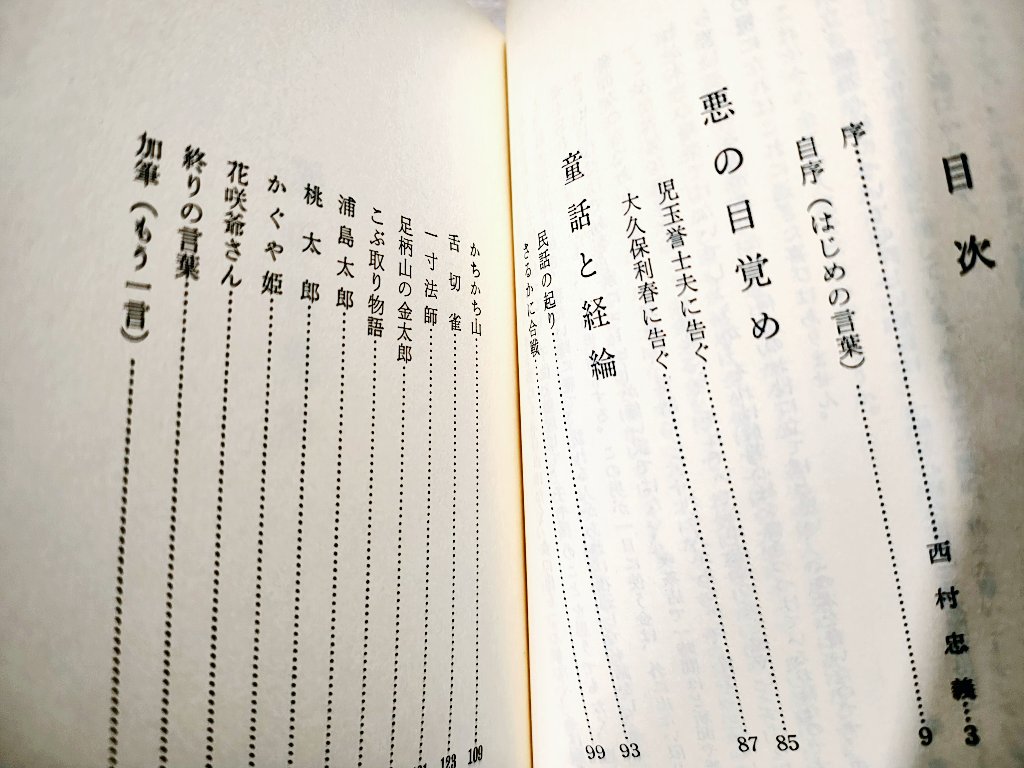 目次
序……西村忠義…3
自序（はじめの言葉）……9
悪の目覚め
児玉誉士夫に告ぐ……85
大久保利春に告ぐ……87
童話と経綸
民話の起り……93
さるかに合戦……99
かちかち山……109
舌切雀……123
一寸法師……
足柄山の金太郎……
こぶ取り物語……
浦島太郎……
桃太郎……
かぐや姫……
花咲爺さん……
終りの言葉……
加筆（もう一言）……